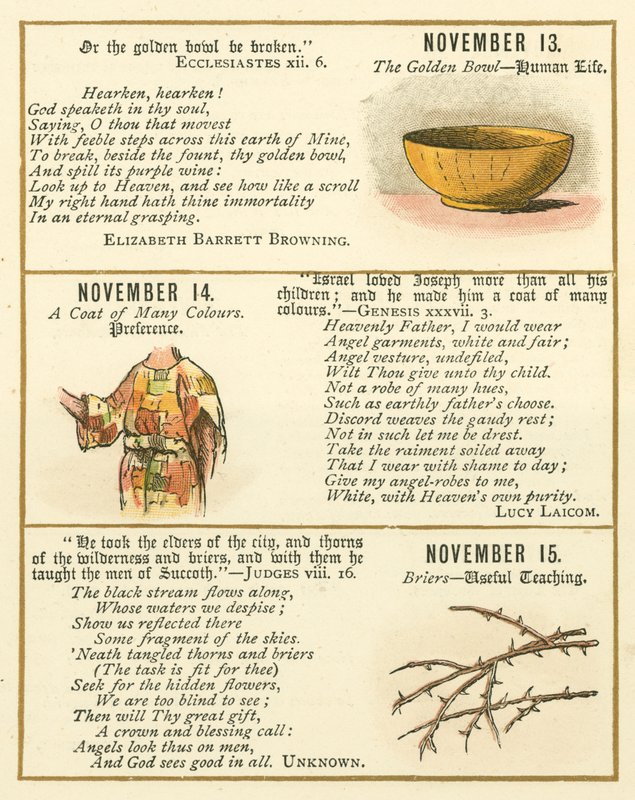 Or the golden bowl be broken."
Ecclesiastes xii. 6.
NOVEMBER 13.
The Golden Bowl—Human Life.
Hearken, hearken!
God speaketh in thy soul,
Saying, O thou that movest
With feeble steps across this earth of Mine,
To break, beside the fount, thy golden bowl,
And spill its purple wine:
Look up to Heaven, and see how like a scroll
My right hand hath thine immortality
In an eternal grasping.
Elizabeth Barrett Browning.
NOVEMBER 14.
A Coat of Many Colours.
Preference.
"Israel loved Joseph more than all his
children; and he made him a coat of many
colours."—Genesis xxxvii. 3.
Heavenly Father, I would wear
Angel garments, white and fair;
Angel vesture, undefiled,
Wilt Thou give unto thy child.
Not a robe of many hues,
Such as earthly father's choose.
Discord weaves the gaudy rest;
Not in such let me be drest.
Take the raiment soiled away
That I wear with shame to day;
Give my angel-robes to me,
White, with Heaven's own purity.
Lucy Laicom.
"He took the elders of the city, and thorns
of the wilderness and briers, and with them he
taught the men of Succoth."—Judges viii. 16.
NOVEMBER 15.
Briers—Useful Teaching.
The black stream flows along,
Whose waters we despise;
Show us reflected there
Some fragment of the skies.
'Neath tangled thorns and briers
(The task is fit for thee)
Seek for the hidden flowers,
We are too blind to see;
Then will Thy great gift,
A crown and blessing call:
Angels look thus on men,
And God sees good in all. Unknown.